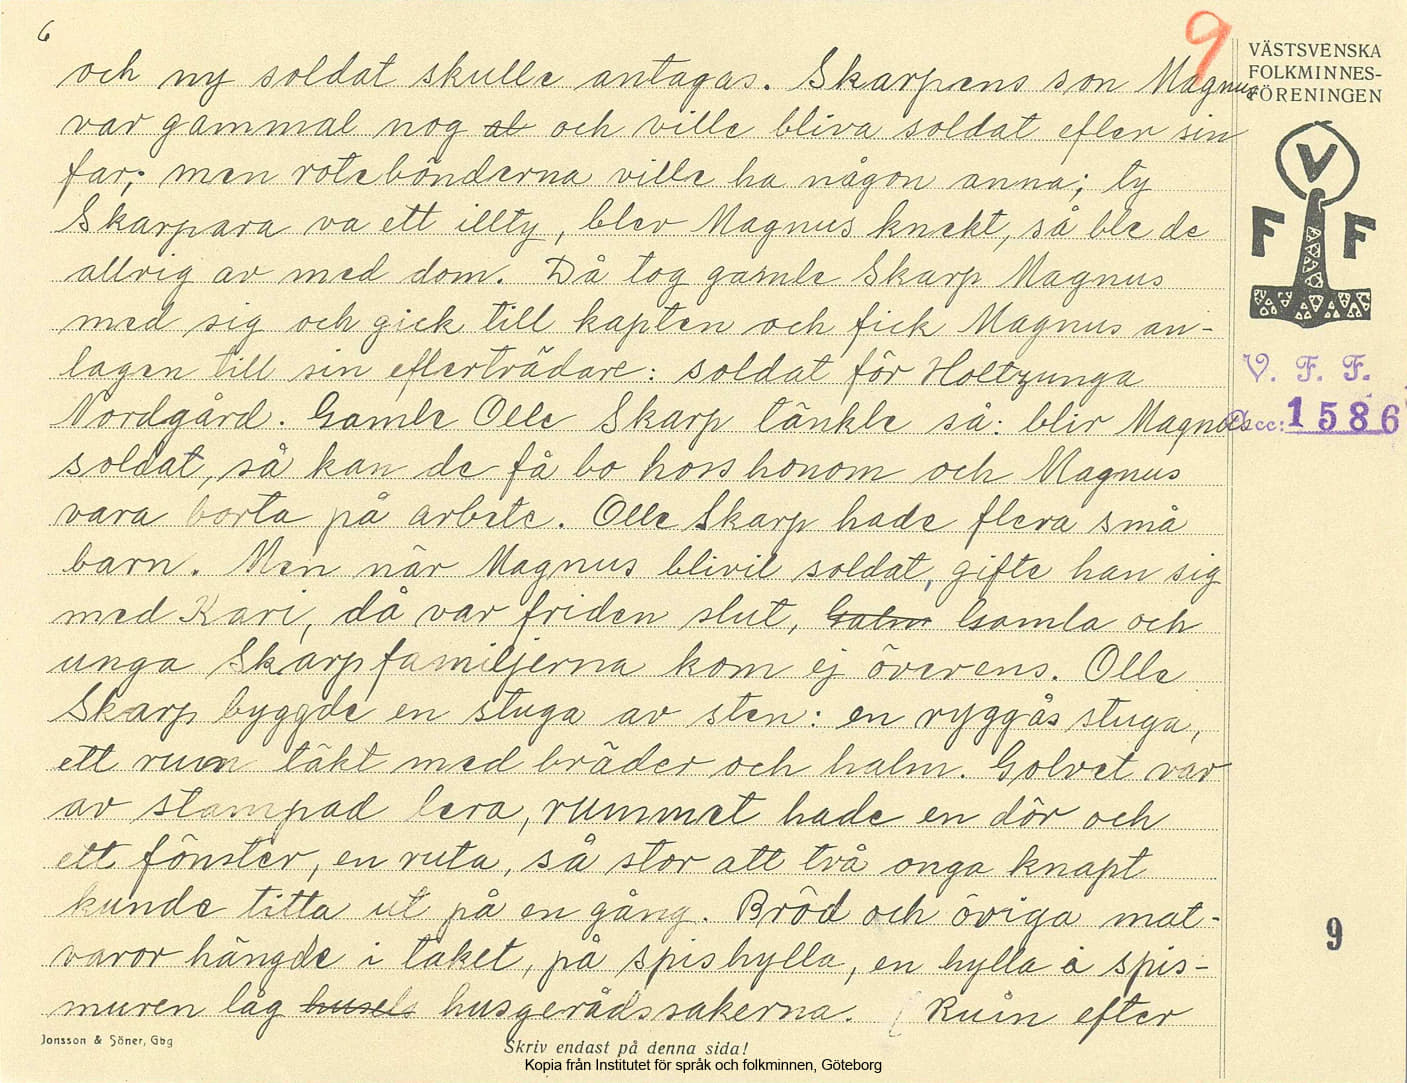 6
9
och ny soldat skulle antagas. Skarpens son Magnus
var gammal nog at och ville bliva soldat efter sin
far; men rotebönderna ville ha någon anna; ty
Skarpara va ett illty, blev Magnus knekt, så ble de
allrig av med dom. Då tog gamle Skarp Magnus
med sig och gick till kapten och fick Magnus an-
tagen till sin efterträdare: soldat för Holtzunga
Nordgård. Gamle Olle Skarp tänkte så: blir Magnus
soldat, så kan de få bo hos honom och Magnus
vara borta på arbete. Olle Skarp hade flera små
barn. Men när Magnus blivit soldat, gifte han sig
med Kari, då var friden slut, Galm Gamla och
unga Skarpfamiljerna kom ej överens. Olle
Skarp byggde en stuga av sten: en ryggås stuga,
ett rum täkt med bräder och halm. Golvet var
av stampad lera, rummet hade en dör och
ett fönster, en ruta, så stor att två onga knapt
kunde titta ut på en gång. Bröd och övriga mat-
varor hängde i taket, på spishylla, en hylla i spis-
muren låg husels husgerådssakerna. (Ruin efter
VÄSTSVENSKA
FOLKMINNES-
FÖRENINGEN
V
F F
V. F. F.
Acc: 1586
9
Jonsson & Söner, Gbg
Skriv endast på denna sida!
Kopia från Institutet för språk och folkminnen, Göteborg